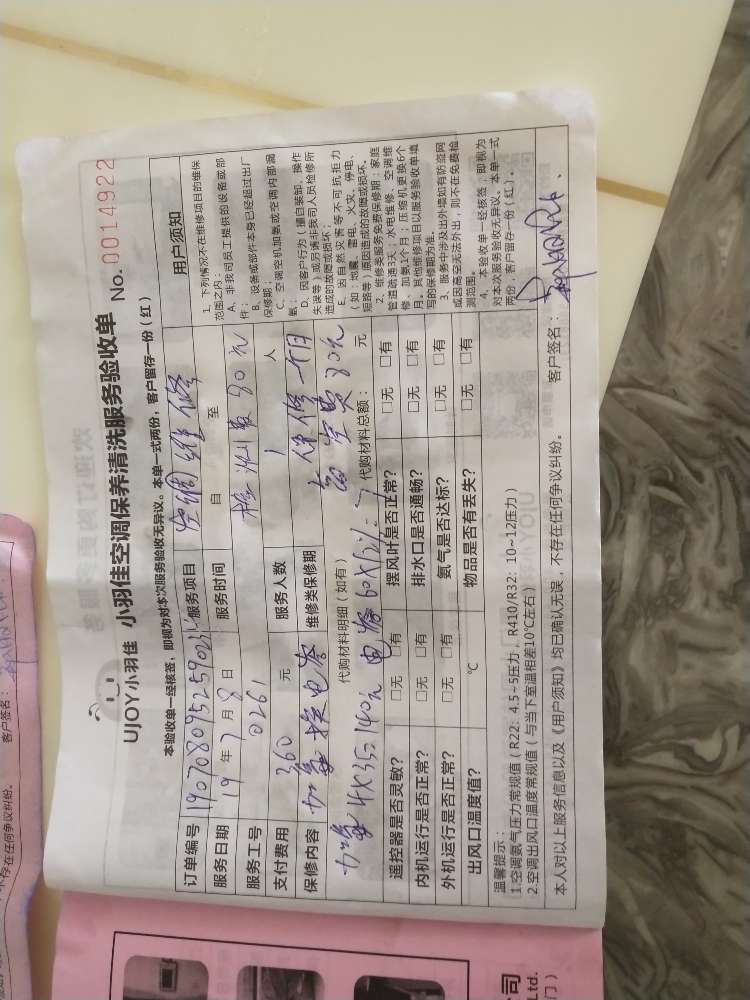 UJOY小羽佳 小羽佳空调保养清洗服务验收单 No. 0014922
本验收单一经核签，即视为对本次服务验收无异议。本单一式两份，客户留存一份（红）
订单编号
服务项目 空调维修
服务日期 19 年 7 月 8 日
服务时间 自 至
服务工号 0261
检测费 80元
支付费用 360 元
服务人数 1 人
保修内容 加氟 换电容
维修类保修期 保修一个月
代购材料明细（如有）
加氟 4X35=140元 电容 60X
高空费 80元
代购材料总额： 元
遥控器是否灵敏？ □无 □有 摆风叶是否正常？ □无 □有
内机运行是否正常？ □无 □有 排水口是否通畅？ □无 □有
外机运行是否正常？ □无 □有 氨气是否达标？ □无 □有
出风口温度值？ ℃ 物品是否有丢失？ □无 □有
温馨提示：
1.空调氨气压力常规值（R22：4.5~5压力，R410/R32：10~12压力）
2.空调出风口温度常规值（与当下室温相差10℃左右）
本人对以上服务信息以及《用户须知》均已确认无误，不存在任何争议纠纷。 客户签名：
用户须知
1、下列情况不在维修项目的维保
范围之内：
A、非我司员工提供的设备或部
件；
B、设备或部件本身已经超过出厂
保修期；
C、空调空机加氨或空调内部漏
氨；
D、因客户行为（擅自装卸、操作
失误等）或另请非我司人员检修所
造成的故障或损坏；
E、因自然灾害等不可抗拒力
（如：地震、雷电、火灾、停电、
短路等）原因造成的故障或损坏。
2、维修类服务免费保修期：家庭
管道疏通3天，水电维修、空调维
修、加氨1个月；压缩机更换6个
月。其他维修项目以服务验收单填
写的保修期为准。
3、服务中涉及出外墙如有防盗网
或因高空无法外出，则不在免费检
测范围。
4、本验收单一经核签，即视为
对本次服务验收无异议。本单一式
两份，客户留存一份（红）。
不存在任何争议纠纷。 客户签名：
司
Ltd.
门）